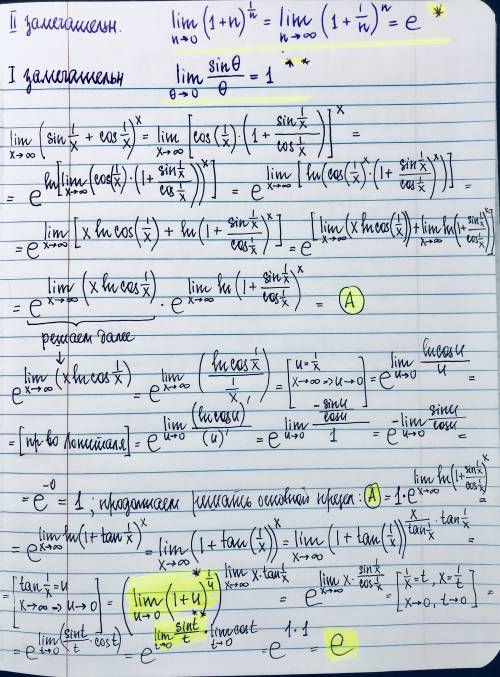 II замечательн. lim_{n→0} (1+n)^{1/n} = lim_{n→∞} (1+1/n)^n = e *
I замечательн lim_{θ→0} sinθ/θ = 1 **
lim_{x→∞} (sin 1/x + cos 1/x)^x = lim_{x→∞} [cos(1/x)·(1 + sin 1/x / cos 1/x)]^x =
= e^{ln[lim_{x→∞} (cos(1/x)·(1 + sin 1/x / cos 1/x))^x]} = e^{lim_{x→∞} [ln(cos(1/x)^x·(1 + sin 1/x / cos 1/x)^x)]} =
= e^{lim_{x→∞} [x ln cos(1/x) + ln(1 + sin 1/x / cos 1/x)^x]} = e^{[lim_{x→∞} (x ln cos(1/x)) + lim_{x→∞} ln(1 + sin 1/x / cos 1/x)^x]}
= e^{lim_{x→∞} (x ln cos 1/x)} · e^{lim_{x→∞} ln(1 + sin 1/x / cos 1/x)^x} = A
решаем далее
↓
e^{lim_{x→∞} (x ln cos 1/x)} = e^{lim_{x→∞} (ln cos 1/x / 1/x)} = [u = 1/x x→∞ => u→0] = e^{lim_{u→0} ln cos u / u} =
= [пр-во Лопиталя] = e^{lim_{u→0} (ln cos u)' / (u)'} = e^{lim_{u→0} (-sin u / cos u) / 1} = e^{-lim_{u→0} sin u / cos u} =
= e^{-0} = 1 ; продолжаем решать основной предел: A = 1·e^{lim_{x→∞} ln(1 + sin 1/x / cos 1/x)^x}
= e^{lim_{x→∞} ln(1 + tan 1/x)^x} = lim_{x→∞} (1 + tan(1/x))^x = lim_{x→∞} (1 + tan(1/x))^{x / tan 1/x · tan 1/x}
= [tan 1/x = u x→∞ => u→0] = (lim_{u→0} (1+u)^{1/u})^{lim_{x→∞} x·tan 1/x} * = e^{lim_{x→∞} x· sin 1/x / cos 1/x} = [1/x = t, x = 1/t x→0, t→0] =
= e^{lim_{t→0} (sin t / t · cos t)} = e^{lim_{t→0} sin t / t ** · lim_{t→0} cos t} = e^{1·1} = e